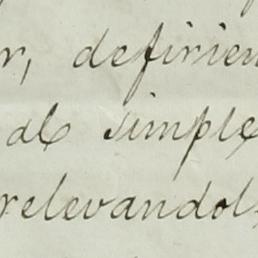 r, defirien
al simple
relevandol